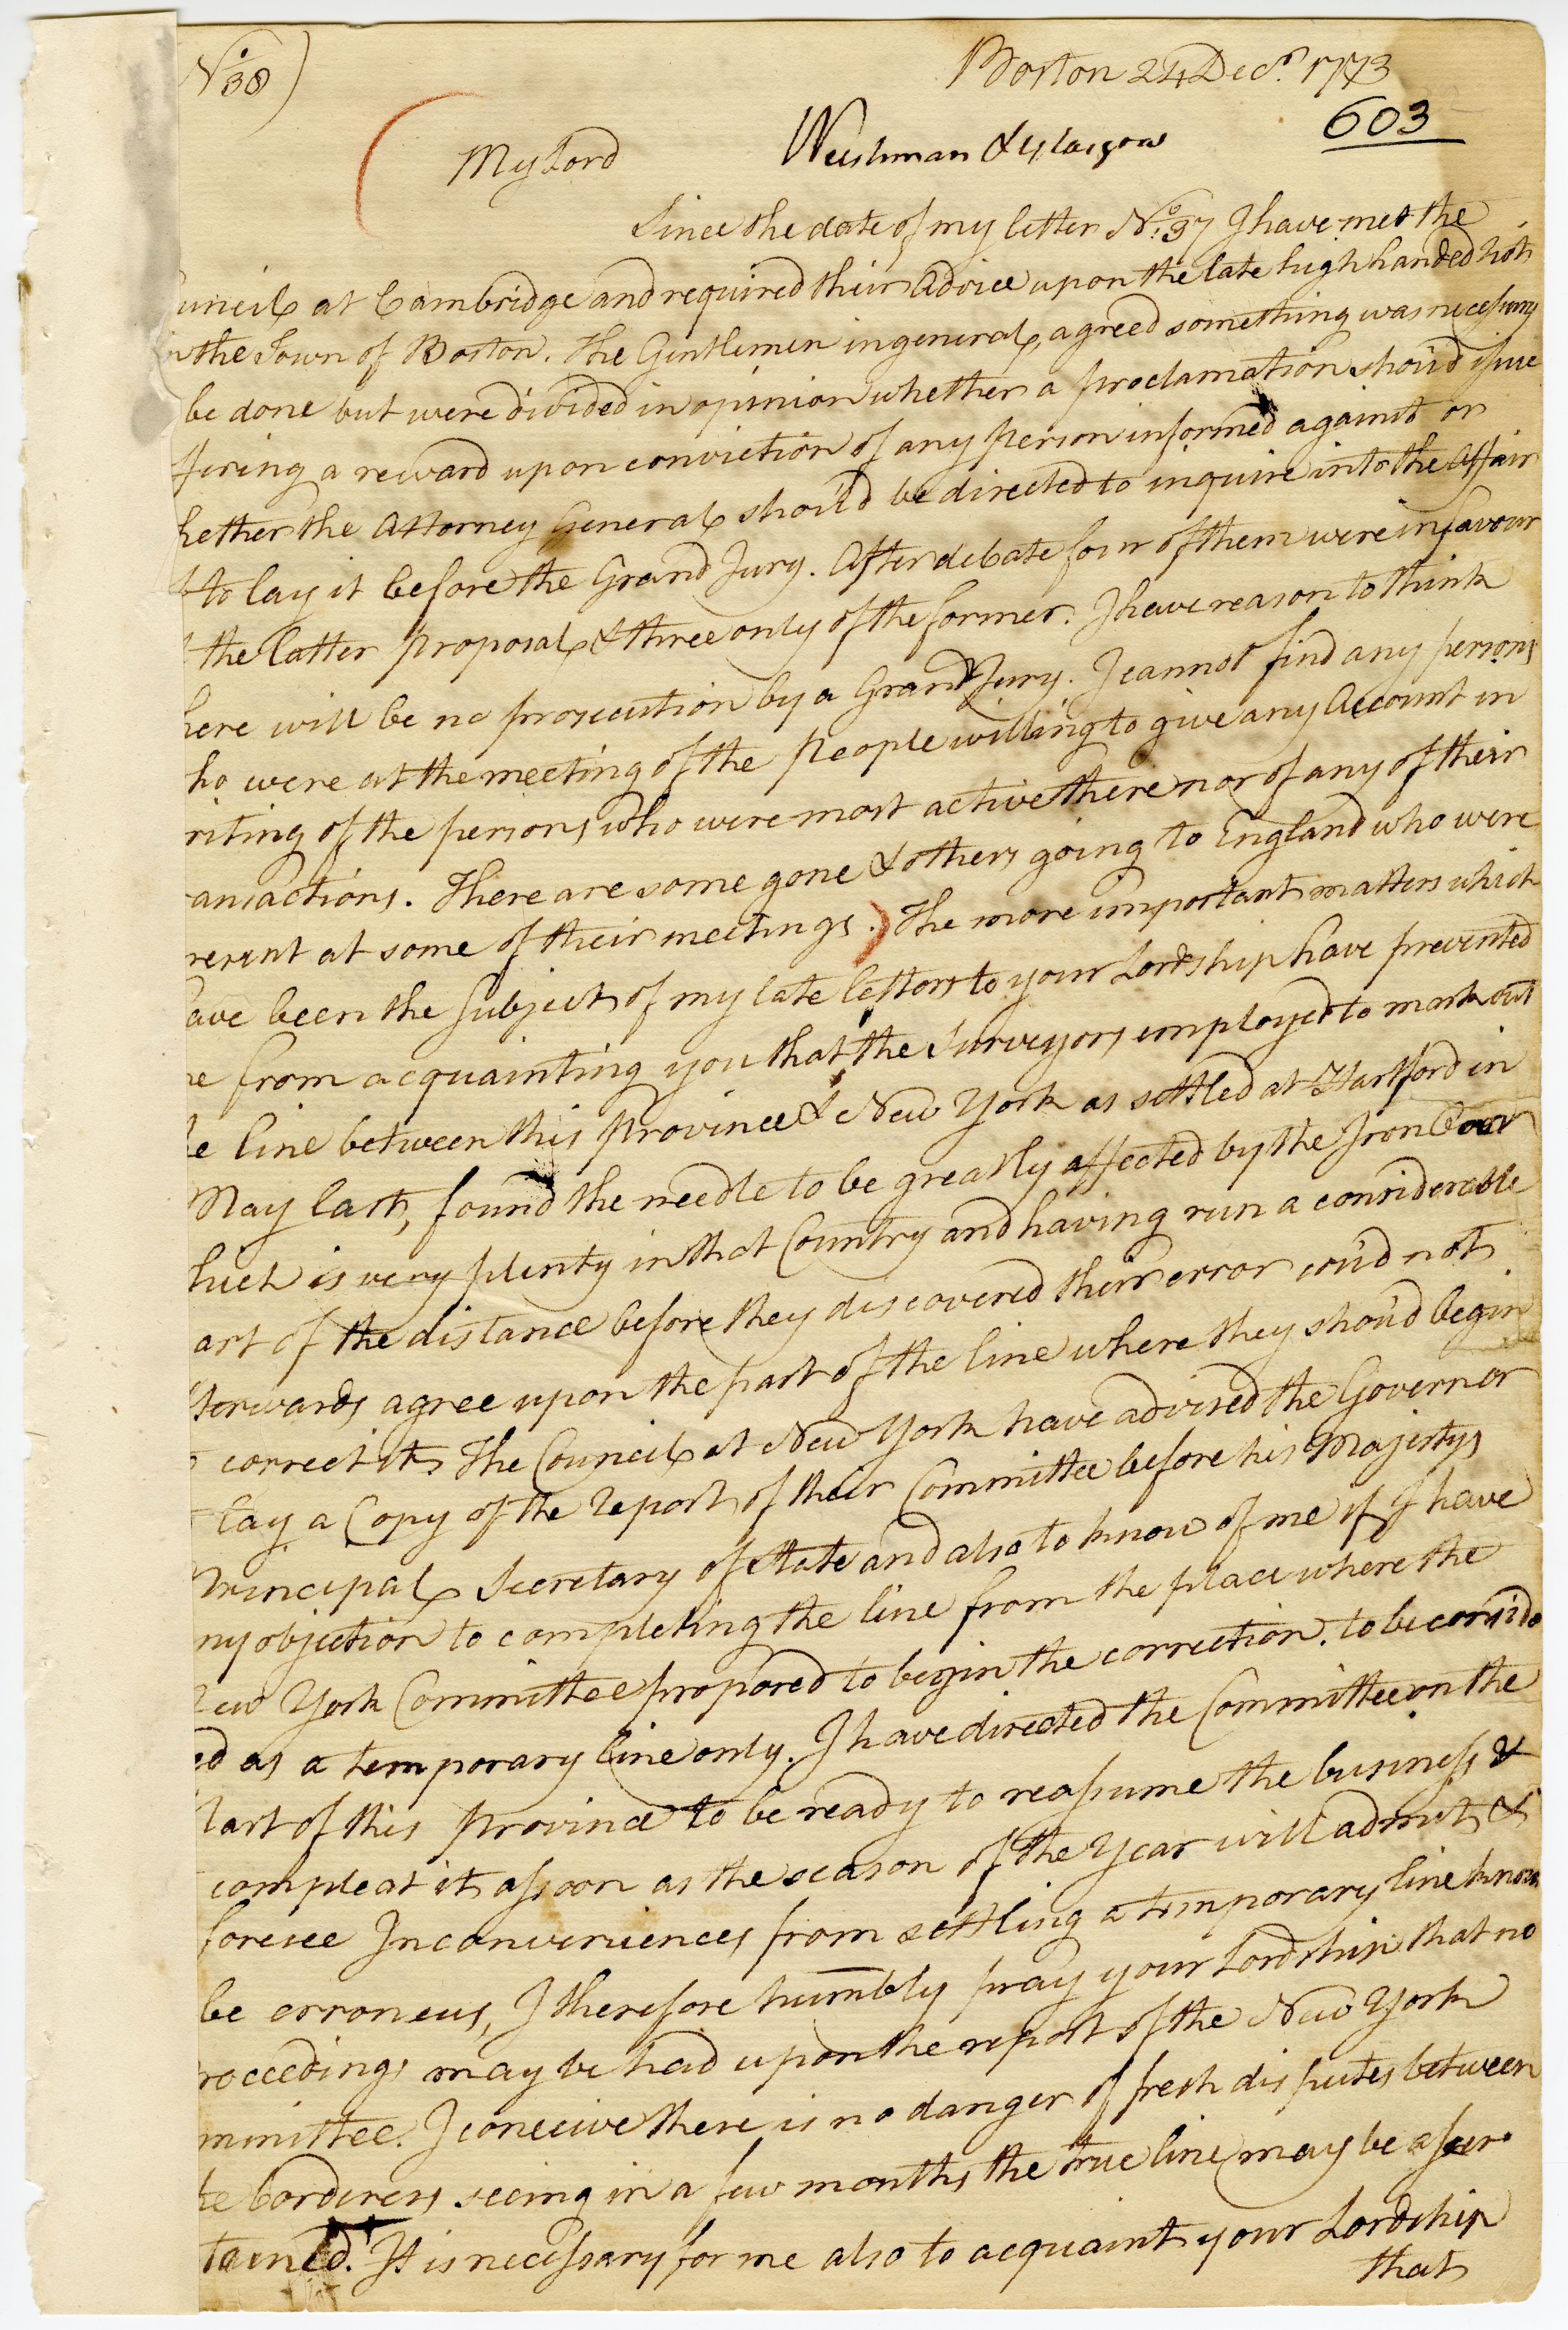 No 38)
Boston 24 Decr. 1773
603
My Lord
Since the date of my letter No. 37 I have met the
uncil at Cambridge and required their Advice upon the late high handed Riot
in the Town of Boston. The Gentlemen in general, agreed something was necessary
be done but were divided in opinion whether a proclamation shou'd issue
ffering a reward upon conviction of any person informed against or
hether the Attorney General shou'd be directed to inquire into the Affair
to lay it before the Grand Jury. After debate four of them were in favour
the latter proposal & three only of the former. I have reason to think
here will be no prosecution by a Grand Jury. I cannot find any persons
ho were at the meeting of the People willing to give any Account in
riting of the persons who were most active there nor of any of their
ansactions. There are some gone & others going to England who were
resent at some of their meetings. The more important matters which
ave been the subject of my late letters to your Lordship have prevented
me from acquainting you that the Surveyors employed to mark out
he line between this province & New York as settled at Hartford in
May last, found the needle to be greatly affected by the Iron Oar
hich is very plenty in that Country and having run a considerable
art of the distance before they discovered their error cou'd not
fterwards agree upon the part of the line where they shou'd begin
correct it. The Council at New York have advised the Governor
lay a Copy of the Report of their Committee before his Majestys
Principal Secretary of State and also to know of me if I have
ny objection to compleating the line from the place where the
New York Committee proposed to begin the correction. to be consider
ed as a temporary line only. I have directed the Committee on the
Part of this Province to be ready to reassume the business &
compleat it as soon as the season of the Year will admit &
foresee Inconveniences from settling a temporary line known
be erroneus, I therefore humbly pray your Lordship that no
roceedings may be had upon the report of the New York
mmittee. I conceive there is no danger of fresh disputes between
he borderers seeing in a few months the true line may be ascer
tained. It is necessary for me also to acquaint your Lordship
that